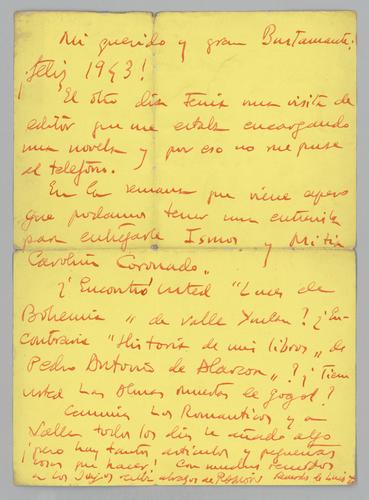 Mi querido y gran Bustamante:
¡feliz 1943!
El otro dia tenia una visita de
editor que me estaba encargando
una novela y por eso no me puse
al teléfono.
En la semana que viene espero
que podamos tener una entrevista
para entregarle Ismos y Mi tia
Carolina Coronado„
¿Encontró usted "Luces de
Bohemia„ de Valle Ynclan? ¿En-
contraria "Historia de mis libros„ de
Pedro Antonio de Alarcon„? ¿Tiene
usted Las Almas muertas de Gogol?
Los Romanticos y a
Valle todos los dias le añado algo
¡pero hay tantos articulos y pequeñas
cosas que hacer! Con muchos recuerdos
a los suyos abrazos de RAMON Recuerdos de Luisa